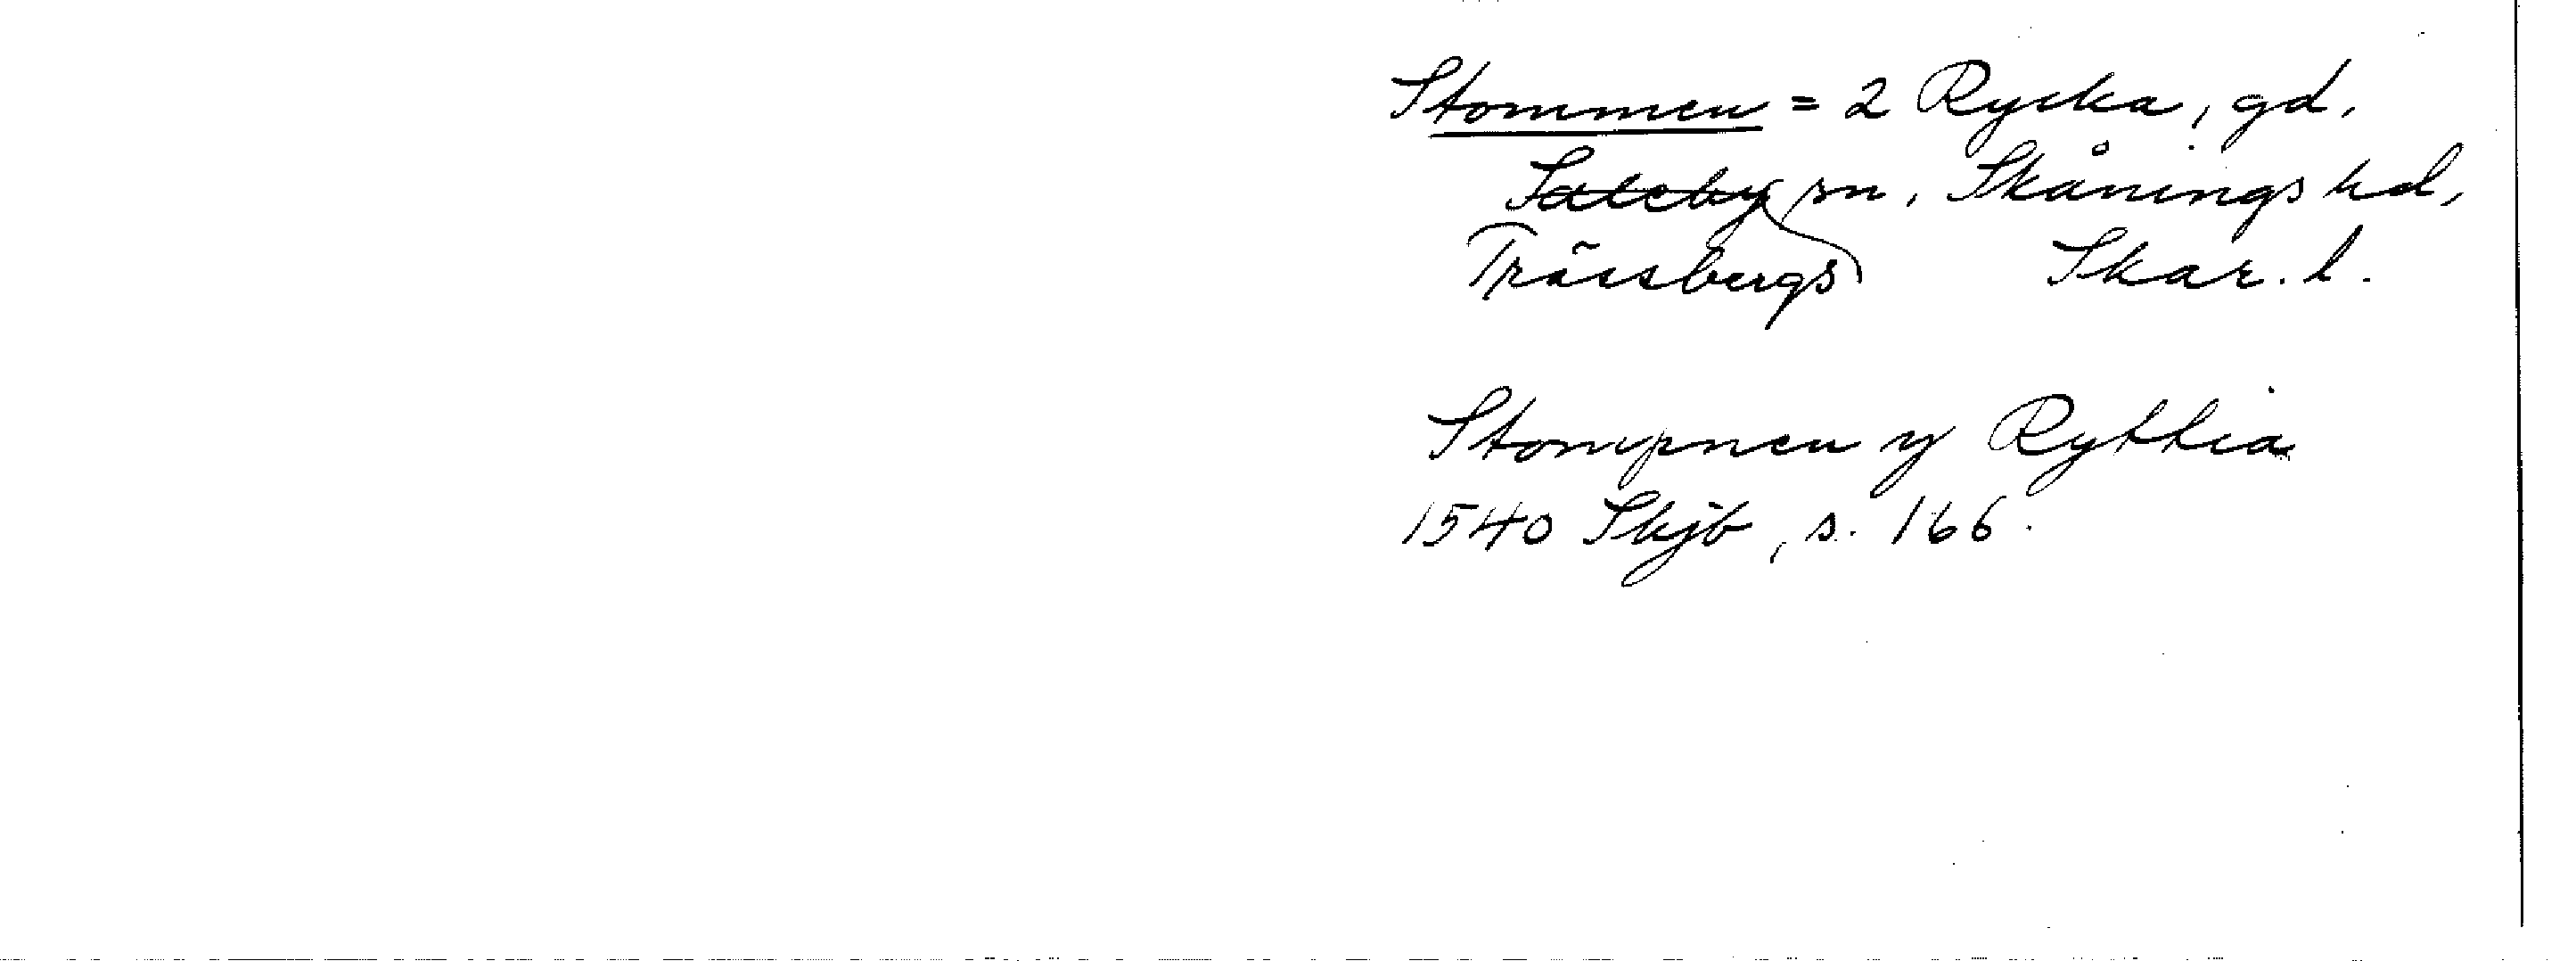 Stommen = 2 Rycka, gd,
Saleby sn, Skånings hd,
Trässbergs Skar. l.
Stompnen y Ryttia
1540 Skjb, s. 166.